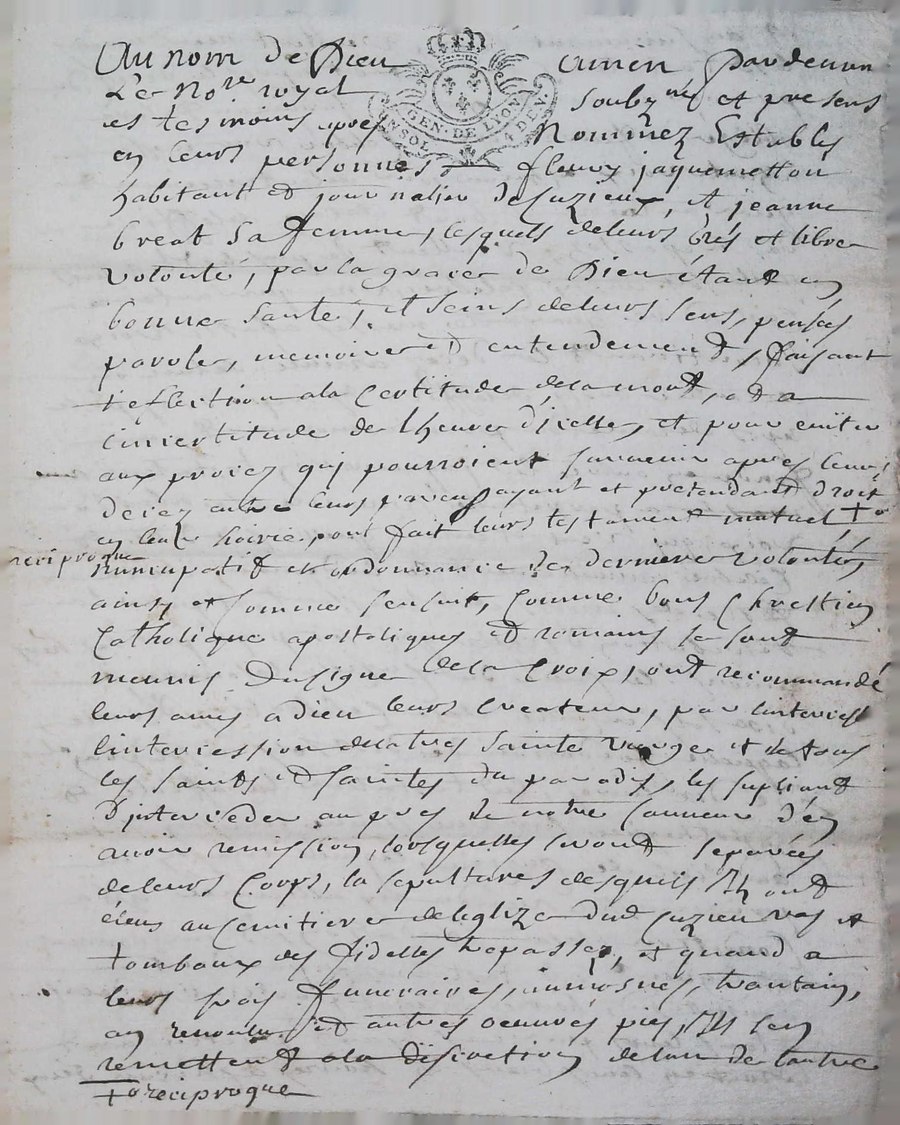 Au nom de Dieu amen pardevan
Le No.re royal soubz.né et presens
GEN. DE LYON
4 DEN.
es tesmoins apres Nommez Establis
en leurs personnes fleury jaquemetton
habitant et journalier de Cuzieu, et jeanne
breat sa femme, lesquels de leurs grés et libre
volonté, par la grace de Dieu étant en
bonne santé, et seins de leurs sens, pensées
parole, memoire et entendement, faisant
reflection a la Certitude de la mort, et a
lincertitude de lheure d'jcelle, et pour eviter
aux procez qui pourroient survenir apres leurs
decez entre leurs parens ayant et pretendant droit
en leur hoirie, ont fait leurs testament mutuel +o
reciproque
nuncupatif et ordonnance de derniere volontés,
ainsy et comme sensuit, Comme bons Chrestien
Catholique apostoliques et romains se sont
meunis du signe de la Croix, ont recommandé
leurs ames a dieu leurs Createur, par
lintercession de la tres sainte vierge et de tous
les saints et saintes du paradis, les supliant
D'jnterceder aupres de notre sauveur d'en
avoir remission, lorsquelles seront separées
de leurs Corps, la sepultures desquels Ils ont
éleus au Cemitiere de leglize dud Cuzieu et
tombaux des fidelles trepassez, et quand a
leurs frais funeraires, aumosnes, trantain,
an revoulu et autres oeuvres pies, Ils sen
remettent a la discretion de lun de lautre
+o reciproque